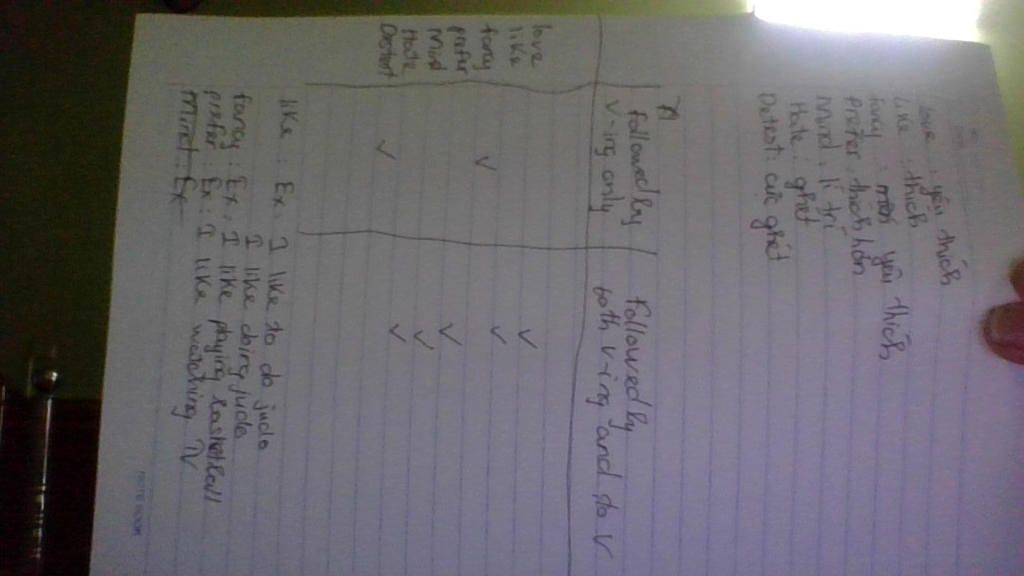 love : yêu thích
like : thích
fancy : mến yêu thích
prefer : thích hơn
Mind : lí trí
Hate : ghét
Detest : cực ghét
followed by V-ing only
followed by both V-ing and to V
love ✓
like ✓
fancy ✓
prefer ✓
Mind ✓
Hate ✓
Detest ✓
like : Ex : I like to do judo
I like doing judo
fancy : Ex : I like playing basketball
prefer : Ex : I like watching TV
Mind : Ex
NOTE BOOK